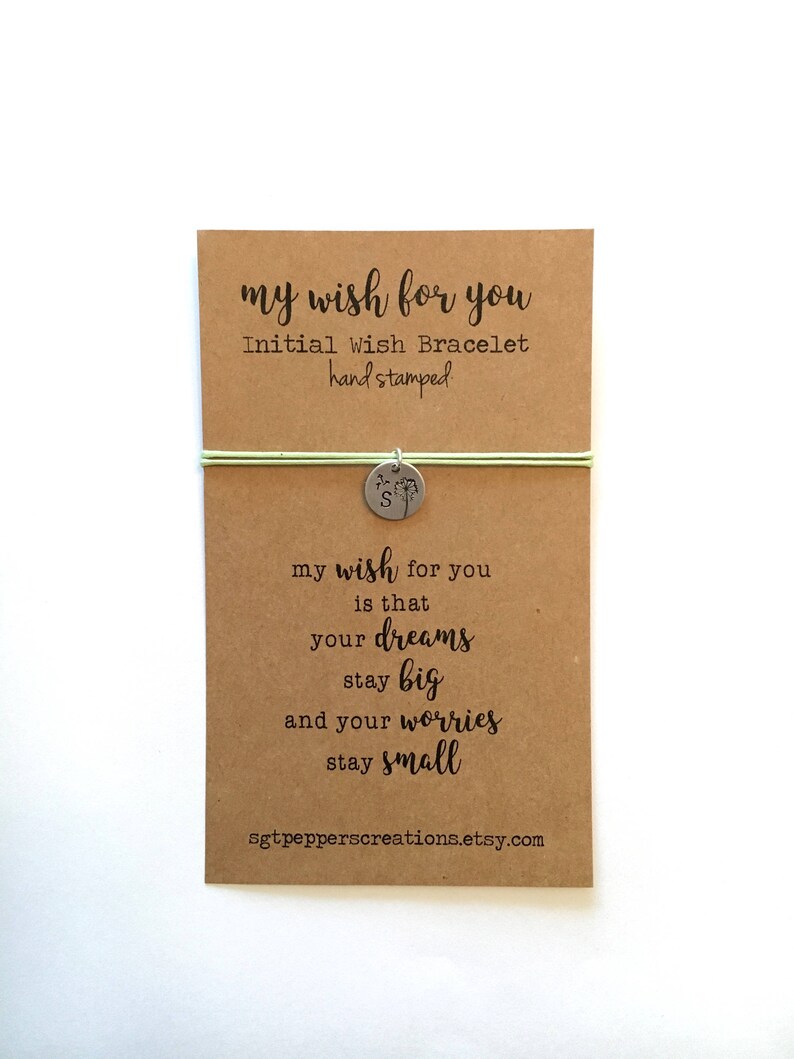 my wish for you
Initial Wish Bracelet
hand stamped
S
my wish for you
is that
your dreams
stay big
and your worries
stay small
sgtpepperscreations.etsy.com